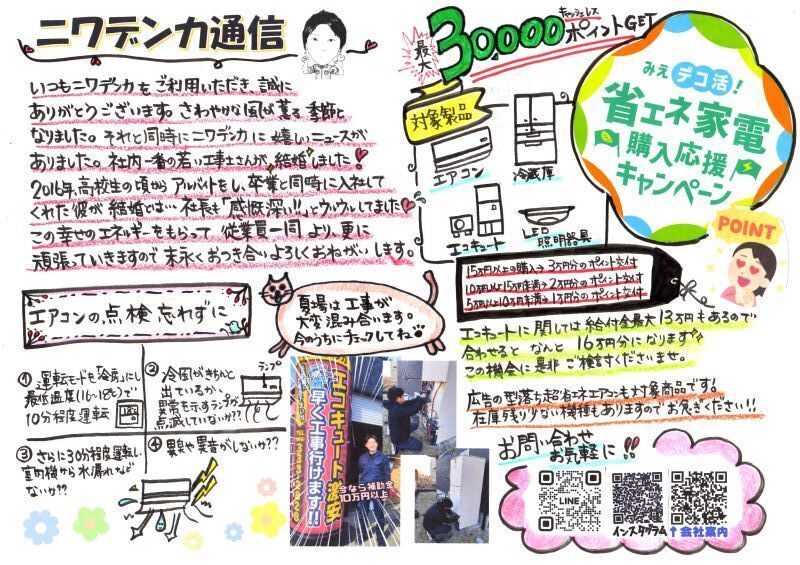 ニワデンカ通信
いつもニワデンカをご利用いただき、誠に
ありがとうございます。さわやかな風が薫る季節と
なりました。それと同時にニワデンカに嬉しいニュースが
ありました。社内一番の若い工事士さんが、結婚しました!
2016年、高校生の頃からアルバイトをし、卒業と同時に入社して
くれた彼が結婚とは…社長も「感慨深い!!」とウルウルしてました
この幸せのエネルギーをもらって従業員一同より、更に
頑張っていきますので末永くおつき合いよろしくおねがいします。
エアコンの点検忘れずに
夏場は工事が
大変混み合います。
今のうちにチェックしてね
① 運転モードを「冷房」にし
最低温度(16~18℃)で
10分程度運転
② 冷風がきちんと
出ているか、
異常を示すランプが
点滅していないか??
ランプ
③ さらに30分程度運転し
室内機から水漏れなど
ないか??
④ 異臭や異音がしないか??
エコキュート激安
早く工事行けます!!
今なら補助金
10万円以上
最大
30,000
キャッシュレス
ポイントGET
対象製品
エアコン
冷蔵庫
エコキュート
LED
照明器具
みえ デコ活!
省エネ家電
購入応援
キャンペーン
POINT
15万円以上の購入→3万円分のポイント交付
10万円以上15万円未満→2万円分のポイント交付
5万円以上10万円未満→1万円分のポイント交付
エコキュートに関しては給付金最大13万円もあるので
合わせると なんと 16万円分になります
この機会に是非ご検討くださいませ。
広告の型落ち超省エネエアコンも対象商品です!
在庫残り少ない機種もありますのでお急ぎください!!
お問い合わせ
お気軽に!!
LINE
インスタグラム
↑会社案内